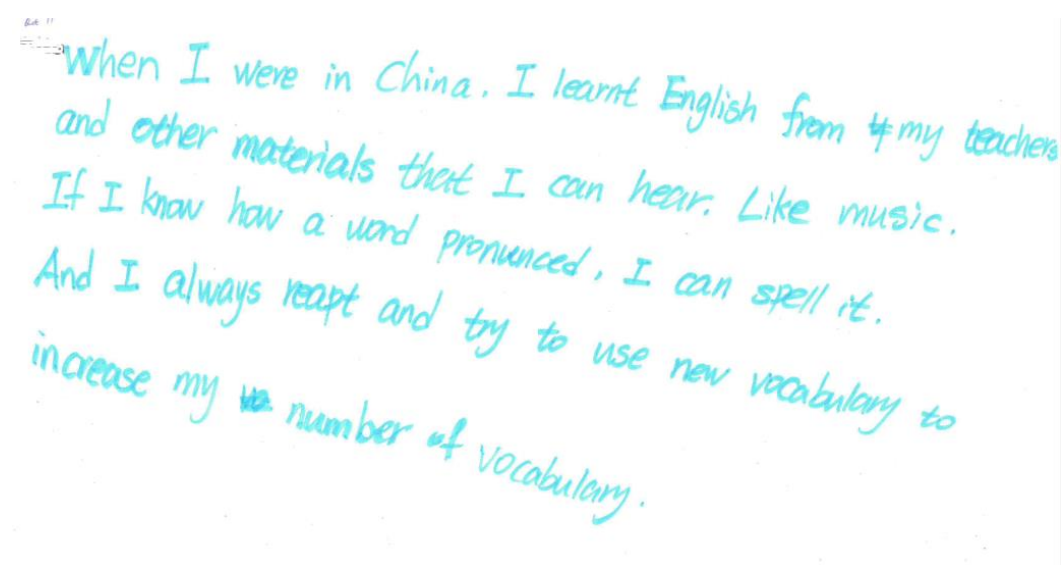 When I were in China. I learnt English from my teachers
and other materials that I can hear. Like music.
If I know how a word pronunced, I can spell it.
And I always reapt and try to use new vocabulary to
increase my number of vocabulary.